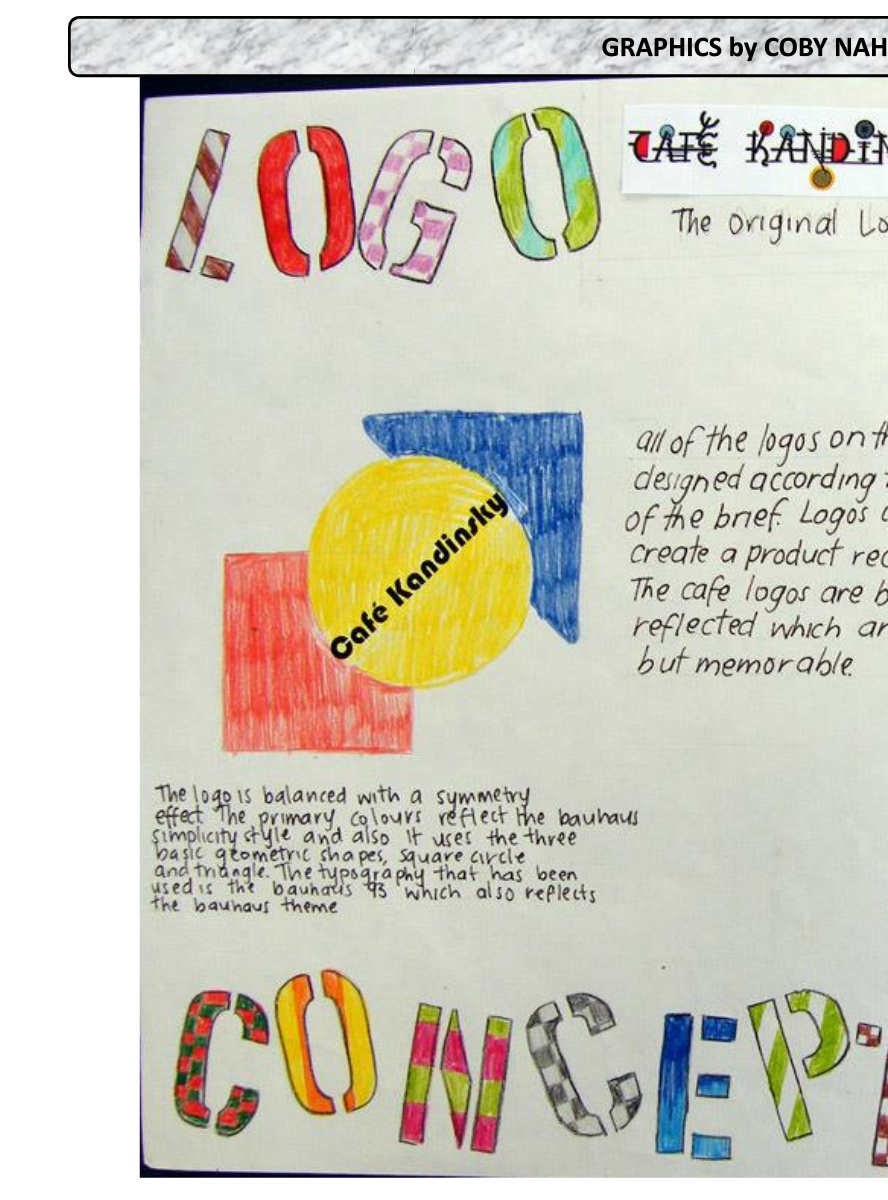 GRAPHICS by COBY NAH
LOGO
CAFÉ KANDIN
The original Lo
all of the logos on th
designed according t
of the brief. Logos
create a product rec
The cafe logos are b
reflected which ar
but memorable.
Café Kandinsky
The logo is balanced with a symmetry
effect The primary colours reflect the bauhaus
simplicity style and also it uses the three
basic geometric shapes, square circle
and triangle. The typography that has been
used is the bauhaus 93 which also reflects
the bauhaus theme
CONCEPT